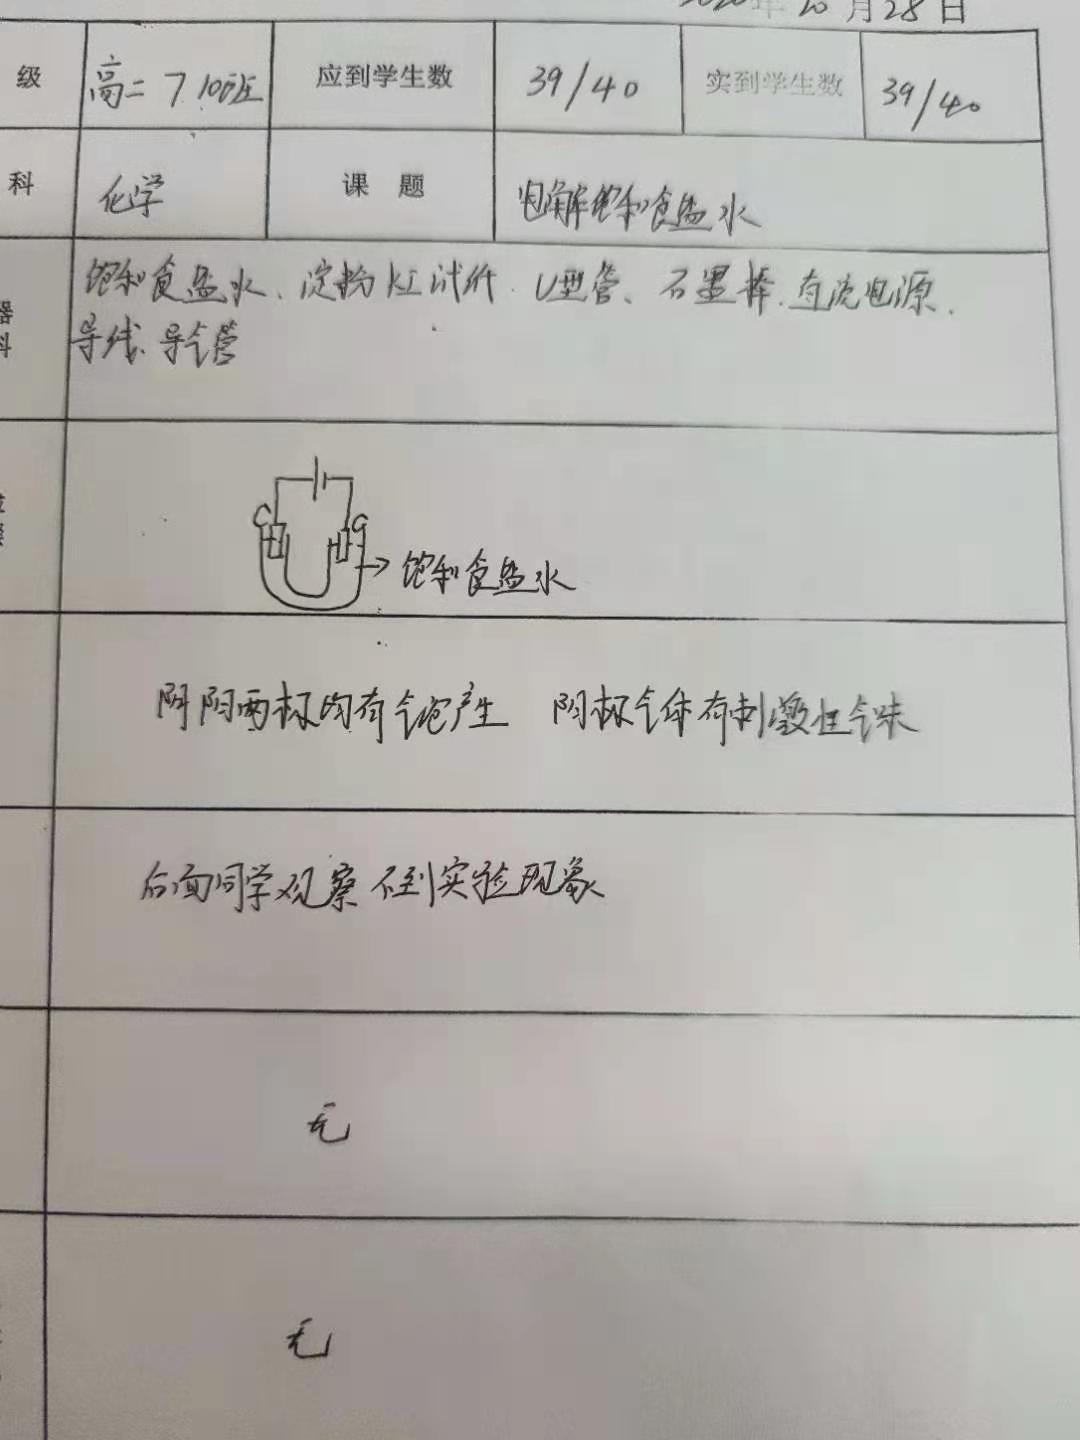 2020年10月28日
级 高二7 10班 应到学生数 39/40 实到学生数 39/40
科 化学 课 题 电解饱和食盐水
饱和食盐水、淀粉KI试纸、U型管、石墨棒、直流电源、
导线、导气管
器
料
C C
→饱和食盐水
阴阳两极均有气泡产生 阴极气体有刺激性气味
后面同学观察不到实验现象
无
无